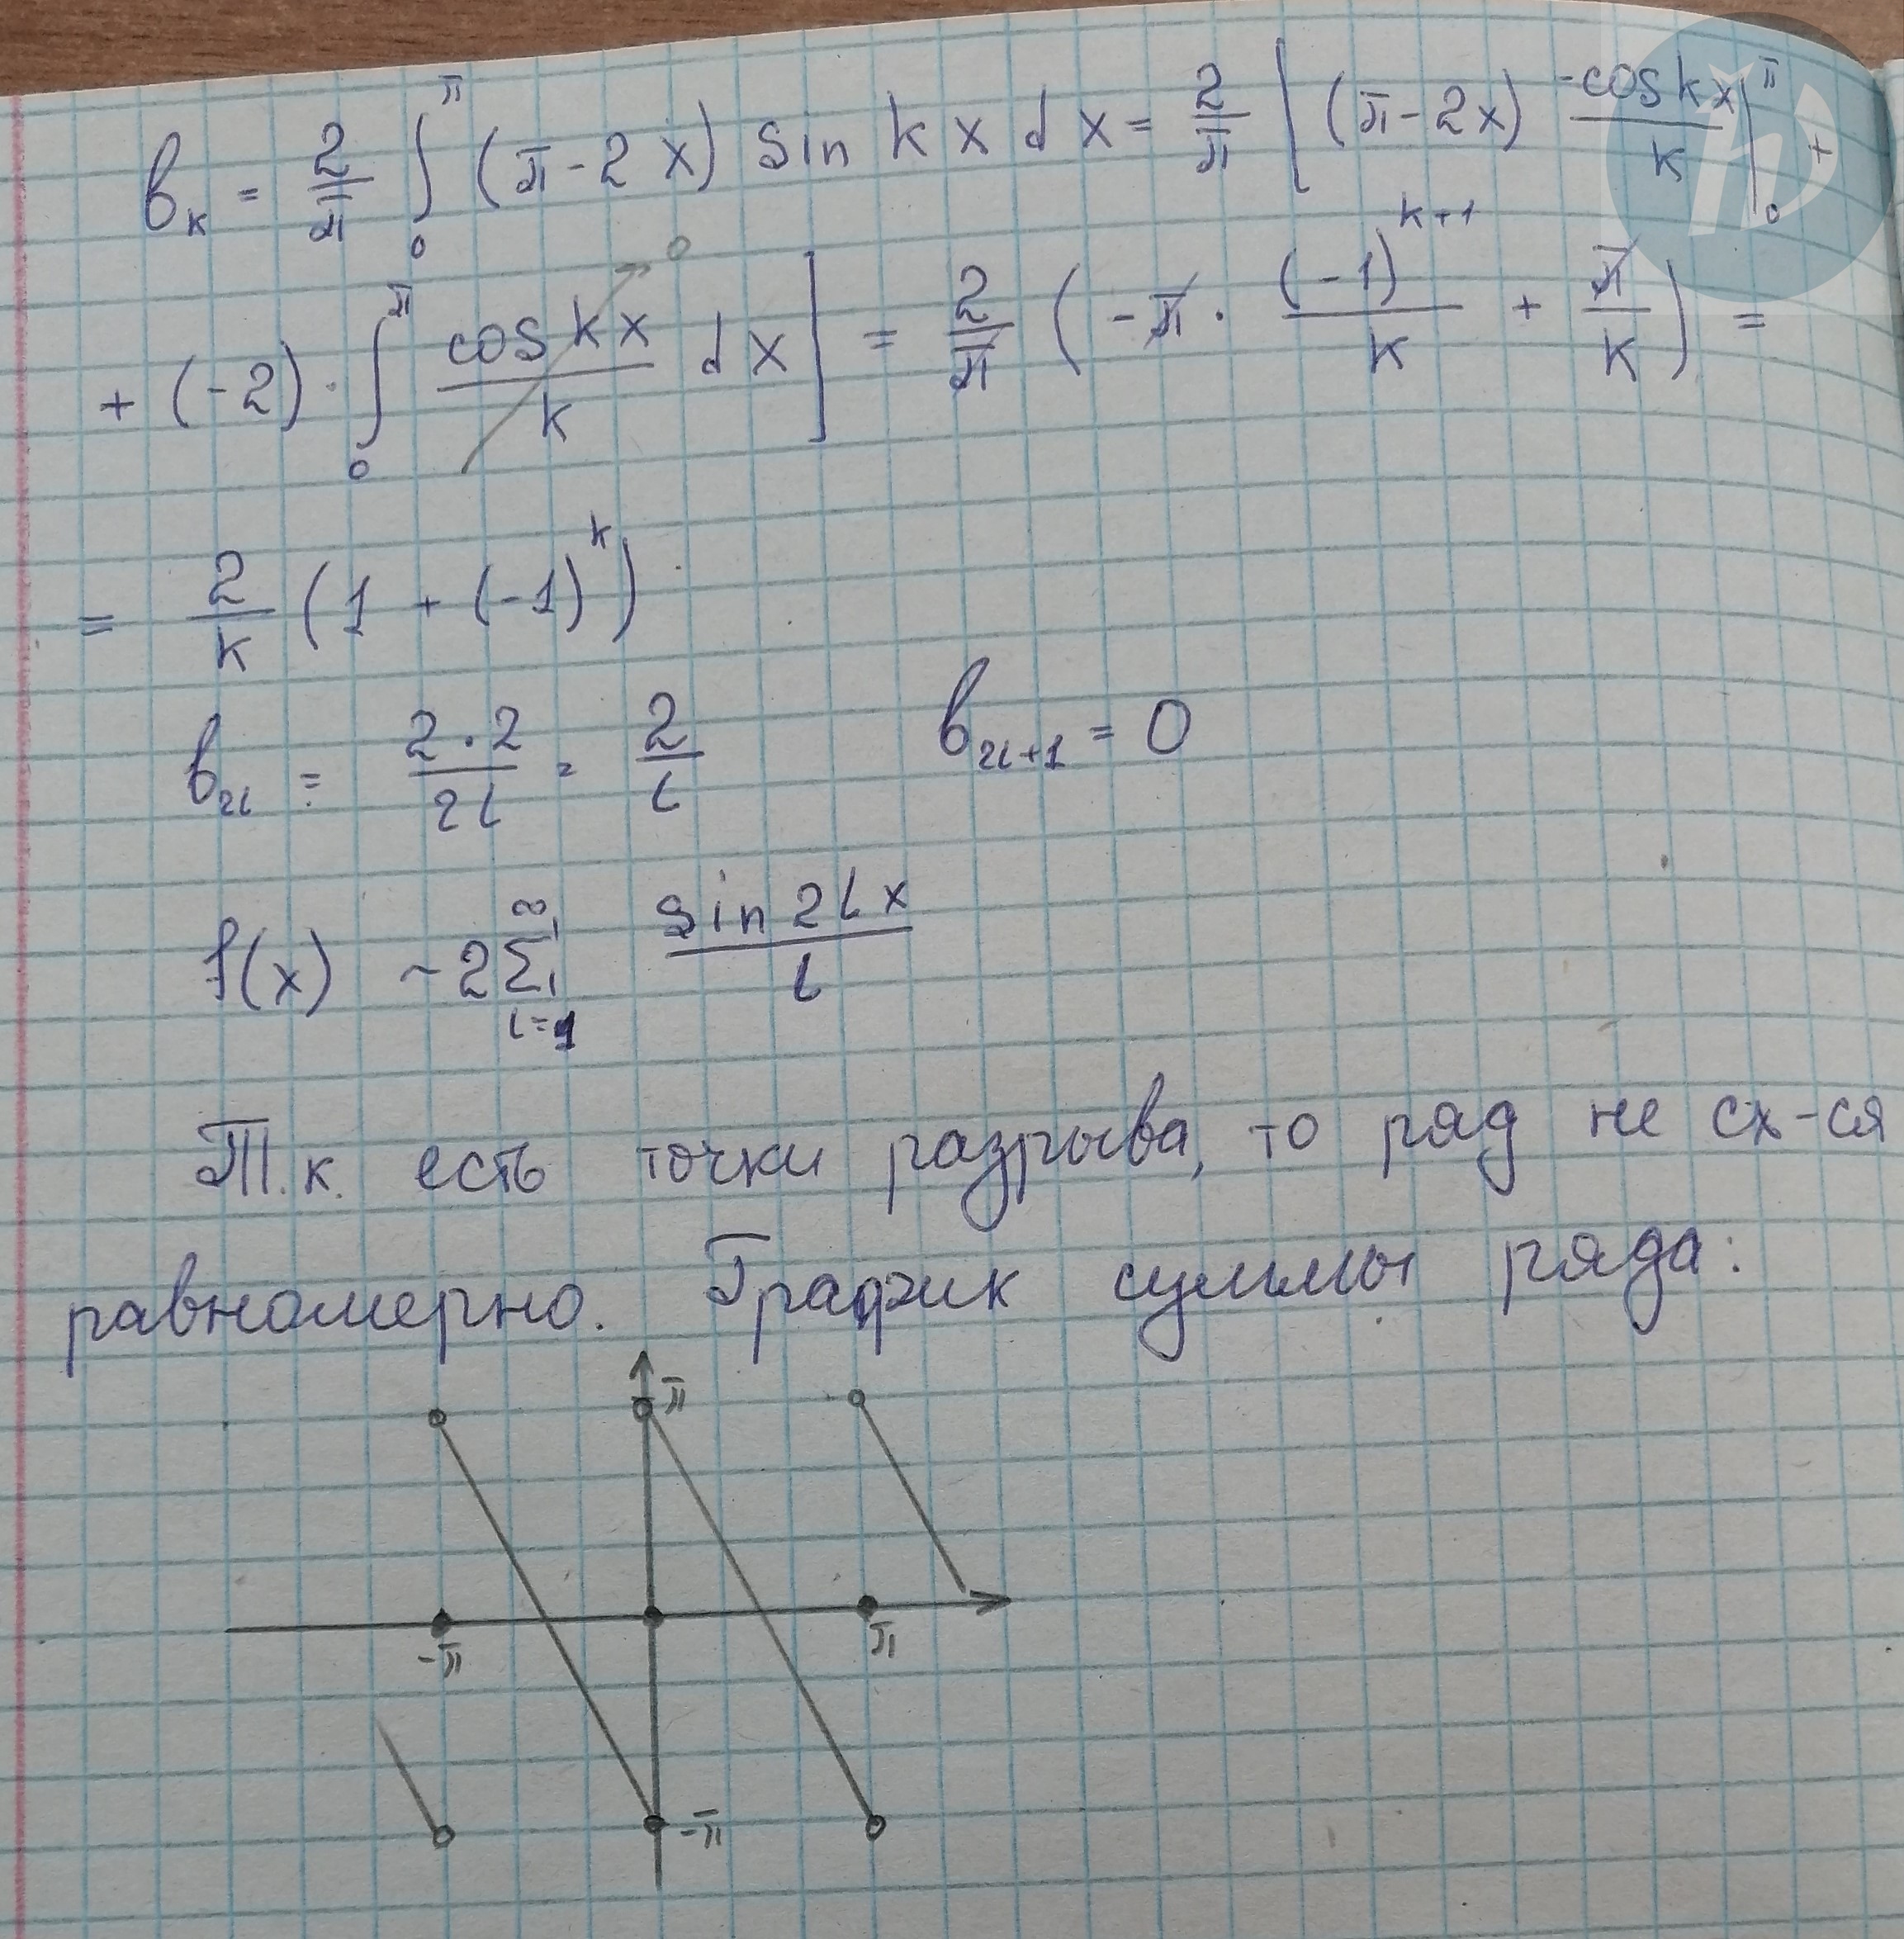 bₖ = 2/π ∫₀^π (π - 2x) sin kx dx = 2/π [ (π - 2x) (-cos kx)/k |₀^π +
+ (-2) · ∫₀^π (cos kx)/k dx ] → 0 = 2/π ( -π · (-1)^(k+1)/k + π/k ) =
= 2/k (1 + (-1)^k)
b₂ₗ = (2·2)/(2l) = 2/l b₂ₗ₊₁ = 0
f(x) ~ 2 ∑_(l=1)^∞ (sin 2lx)/l
Т.к. есть точки разрыва, то ряд не сх-ся
равномерно. График суммы ряда:
π
-π π
-π